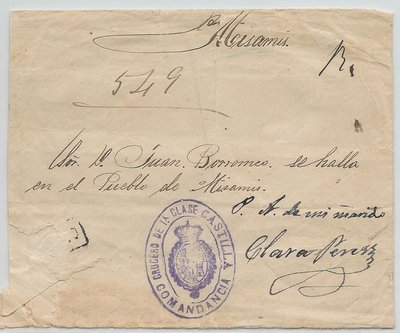 Misamis.
R.
549
Sor. D. Juan Borromeo. se halla
en el Pueblo de Misamis.
P. A. de mi mando
Clara Perez
CRUCERO DE LA CLASE CASTILLA
COMANDANCIA